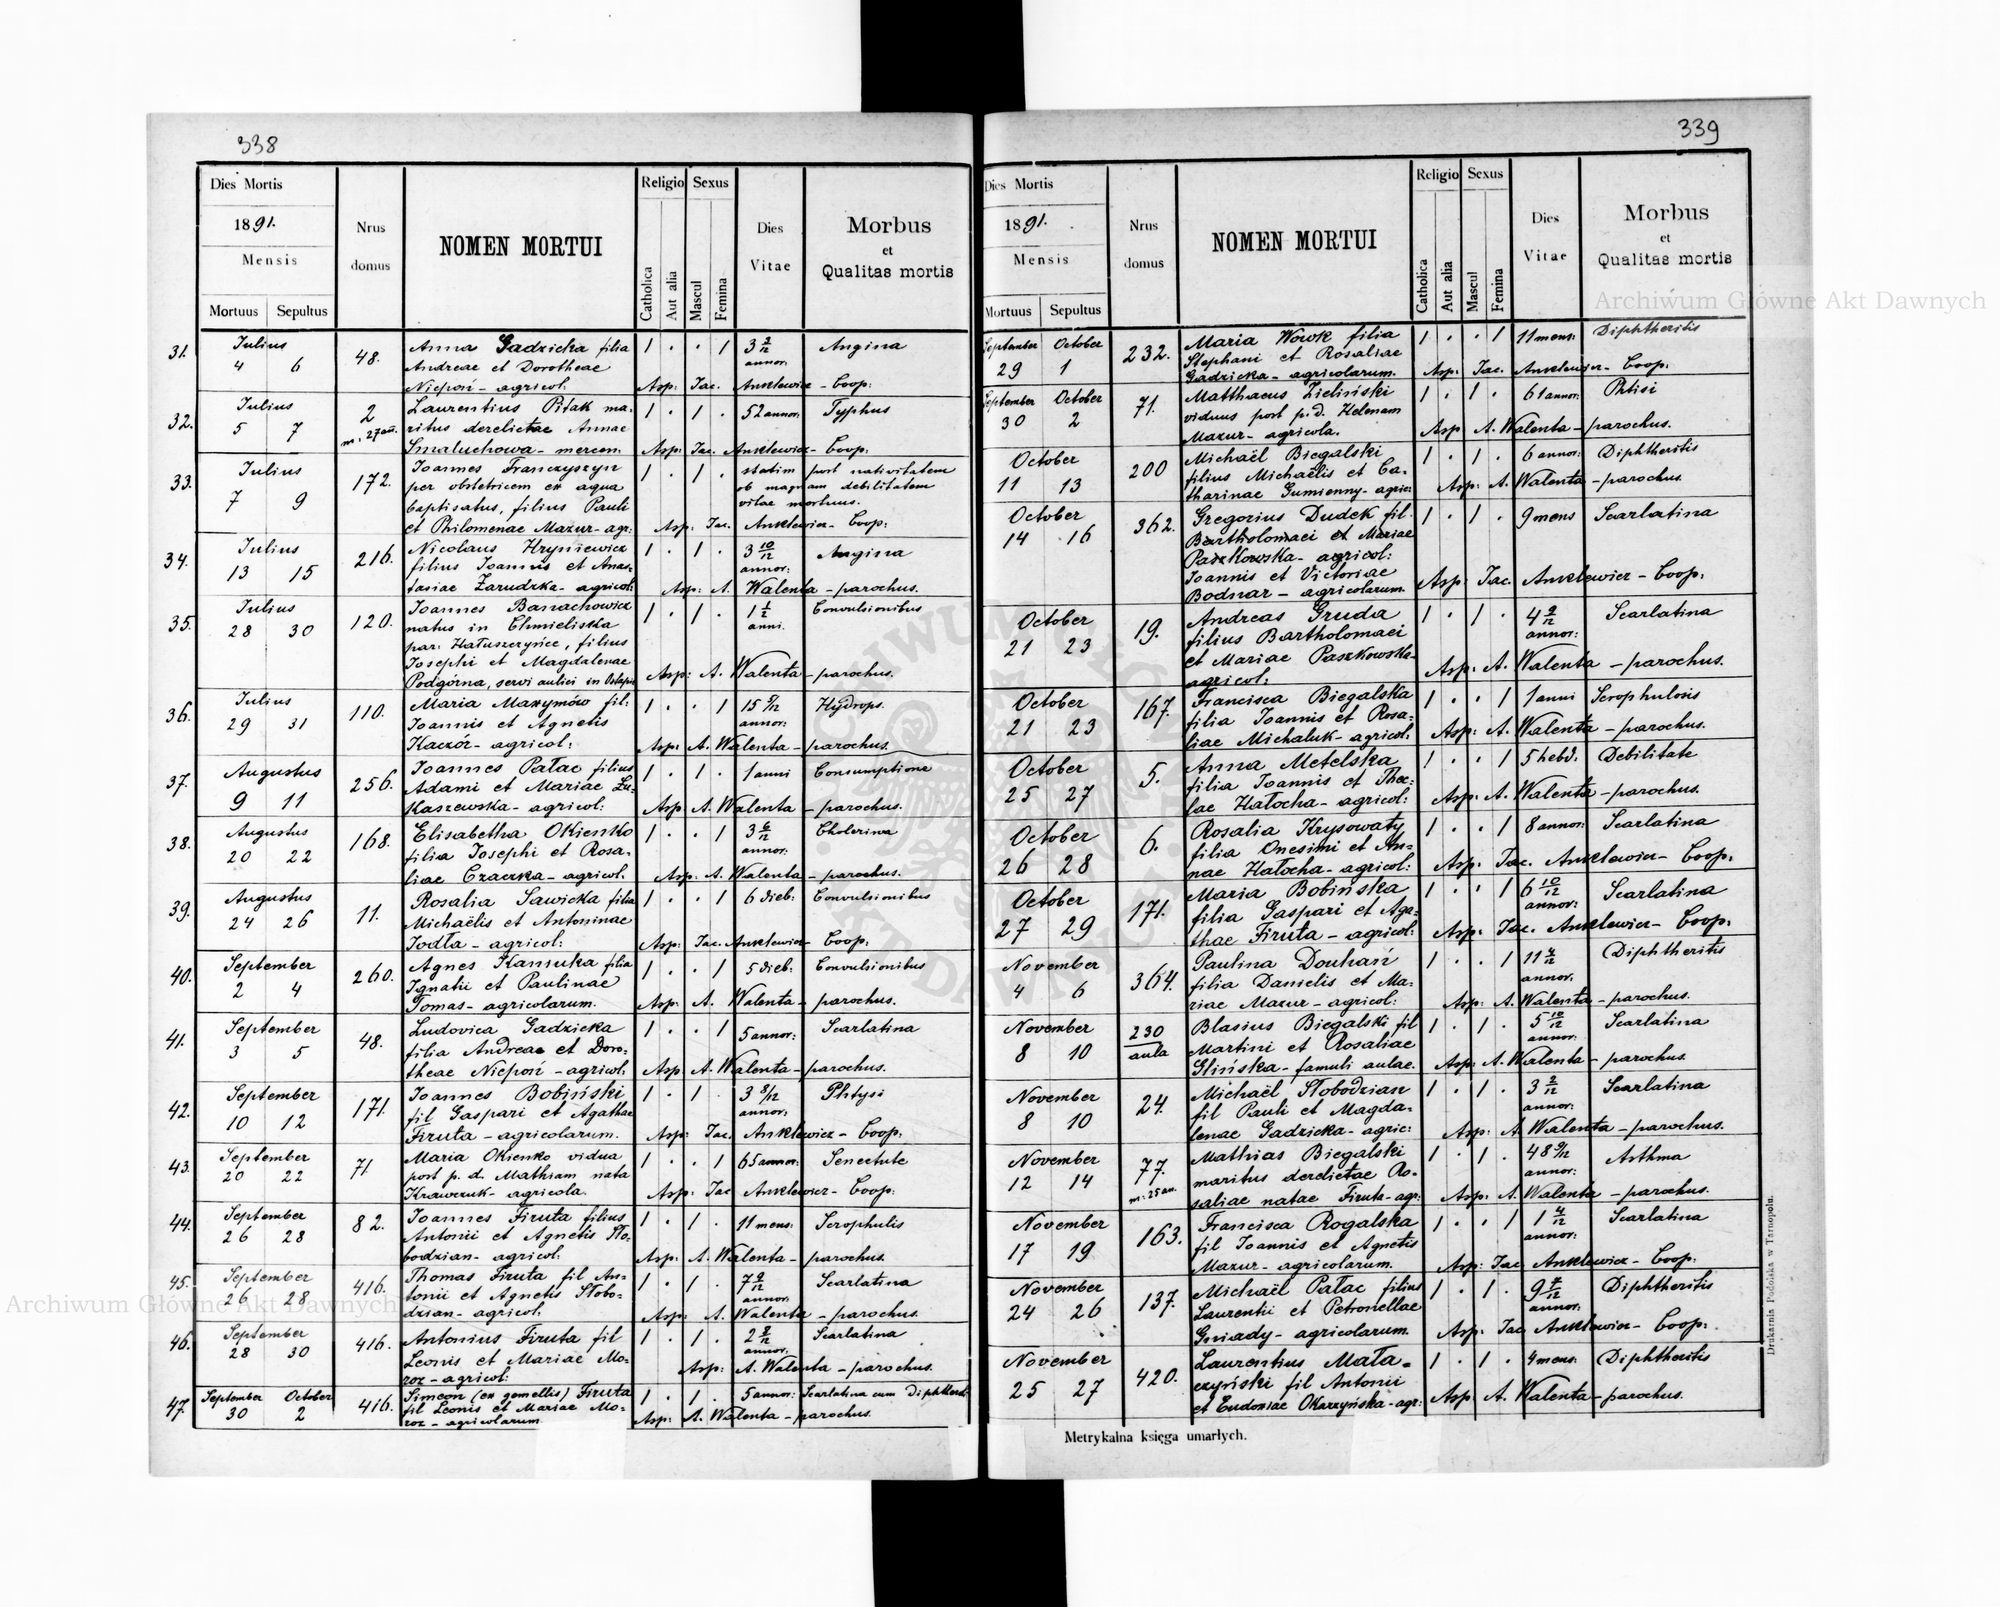 338
Dies Mortis
1891.
Mensis
Mortuus Sepultus
Nrus domus
NOMEN MORTUI
Religio Sexus
Catholica Aut alia Mascul Femina
Dies Vitae
Morbus
et
Qualitas mortis
31. Julius 48. Anna Gadzicka filia 1 . . 1 3 2/12 Angina
4 6 Andreae et Dorotheae annor.
Niepoń - agricol. Asp: Jac. Anklewicz - Coop:
32. Julius 2 Laurentius Pitak ma- 1 . 1 . 52 annor: Typhus
5 7 m: 27 an. ritus derelictae Annae
Smaluchowa - mercen. Asp: Jac. Anklewicz - Coop:
33. Julius 172. Joannes Franczyszyn 1 . 1 . statim post nativitatem
7 9 per obstetricem ex aqua ob magnam debilitatem
baptisatus, filius Pauli vitae mortuus.
et Philomenae Mazur - agr: Asp: Jac. Anklewicz - Coop:
34. Julius 216. Nicolaus Hryniewicz 1 . 1 . 3 10/12 Angina
13 15 filius Joannis et Anas- annor:
tasiae Zarudzka - agricol: Asp: A. Walenta - parochus.
35. Julius 120. Joannes Banachowicz 1 . 1 . 1 1/2 Convulsionibus
28 30 natus in Chmieliska anni.
par: Hałuszczyńce, filius
Josephi et Magdalenae Asp: A. Walenta - parochus.
Podgórna, servi aulici in
36. Julius 110. Maria Maxymów fil: 1 . . 1 15 Hydrops.
29 31 Joannis et Agnetis annor:
Kaczór - agricol: Asp: A. Walenta - parochus.
37. Augustus 256. Joannes Pałac filius 1 . 1 . 1 anni Consumptione
9 11 Adami et Mariae Łu-
kaszewska - agricol: Asp: A. Walenta - parochus.
38. Augustus 168. Elisabetha Okienko 1 . . 1 3 6/12 Cholerina
20 22 filia Josephi et Rosa- annor:
liae Czaczka - agricol. Asp: A. Walenta - parochus.
39. Augustus 11. Rosalia Sawicka filia 1 . . 1 6 dieb: Convulsionibus
24 26 Michaëlis et Antoninae
Jodła - agricol: Asp: Jac. Anklewicz - Coop:
40. September 260. Agnes Kaniuka filia 1 . . 1 5 dieb: Convulsionibus
2 4 Ignatii et Paulinae
Tomas - agricolarum. Asp: A. Walenta - parochus.
41. September 48. Ludovica Gadzicka 1 . . 1 5 annor: Scarlatina
3 5 filia Andreae et Doro-
theae Niepoń - agricol. Asp: A. Walenta - parochus.
42. September 171. Joannes Bobiński 1 . 1 . 3 8/12 Phtysi
10 12 fil Gaspari et Agathae annor:
Firuta - agricolarum. Asp: Jac. Anklewicz - Coop:
43. September 71 Maria Okienko vidua 1 . . 1 65 annor: Senectute
20 22 post p. d. Mathiam nata
Krawczuk - agricola. Asp: Jac Anklewicz - Coop:
44. September 82. Joannes Firuta filius 1 . 1 . 11 mens: Scrophulis
26 28 Antonii et Agnetis Sło-
bodzian - agricol: Asp: A. Walenta - parochus.
45. September 416. Thomas Firuta fil An- 1 . 1 . 7 2/12 Scarlatina
26 28 tonii et Agnetis Słobo- annor:
dzian - agricol. Asp: A. Walenta - parochus.
46. September 416. Antonius Firuta fil 1 . 1 . 2 Scarlatina
28 30 Leonis et Mariae Mo- annor.
roz - agricol: Asp: A. Walenta - parochus.
47. September October 416. Simeon (ex gemellis) Firuta 1 . 1 . 5 annor: Scarlatina cum
30 2 fil Leonis et Mariae Mo-
roz - agricolarum. Asp: A. Walenta - parochus.
339
Dies Mortis
1891.
Mensis
Mortuus Sepultus
Nrus domus
NOMEN MORTUI
Religio Sexus
Catholica Aut alia Mascul Femina
Dies Vitae
Morbus
et
Qualitas mortis
September October 232. Maria Wowk filia 1 . . 1 11 mens: Diphtheritis
29 1 Stephani et Rosaliae
Gadzicka - agricolarum. Asp: Jac. Anklewicz - Coop:
September October 71. Matthaeus Zieliński 1 . 1 . 61 annor: Phtisi
30 2 viduus post p. d. Helenam
Mazur - agricola. Asp A. Walenta - parochus.
October 200 Michaël Biegalski 1 . 1 . 6 annor: Diphtheritis
11 13 filius Michaëlis et Ca-
tharinae Gumienny - agric: Asp: A. Walenta - parochus.
October 362. Gregorius Dudek fil. 1 . 1 . 9 mens Scarlatina
14 16 Bartholomaei et Mariae
Paszkowska - agricol:
Joannis et Victoriae Asp: Jac. Anklewicz - Coop:
Bodnar - agricolarum.
October 19. Andreas Gruda 1 . 1 . 4 2/12 Scarlatina
21 23 filius Bartholomaei annor:
et Mariae Paszkowska- Asp: A. Walenta - parochus.
agricol:
October 167. Francisca Biegalska 1 . . 1 1 anni Scrophulosis
21 23 filia Joannis et Rosa-
liae Michaluk - agricol: Asp: A. Walenta - parochus.
October 5. Anna Metelska 1 . . 1 5 hebd. Debilitate
25 27 filia Joannis et Thec-
lae Hałocha - agricol: Asp: A. Walenta - parochus.
October 6. Rosalia Krysowaty 1 . . 1 8 annor: Scarlatina
26 28 filia Onesimi et An-
nae Hałocha - agricol: Asp: Jac. Anklewicz - Coop:
October 171. Maria Bobińska 1 . . 1 6 10/12 Scarlatina
27 29 filia Gaspari et Aga- annor:
thae Firuta - agricol: Asp: Jac. Anklewicz - Coop:
November 364. Paulina Douhań 1 . . 1 11 Diphtheritis
4 6 filia Danielis et Ma- annor.
riae Mazur - agricol: Asp: A. Walenta - parochus.
November 230 Blasius Biegalski fil 1 . 1 . 5 10/12 Scarlatina
8 10 aula Martini et Rosaliae annor:
Glińska - famuli aulae. Asp: A. Walenta - parochus.
November 24. Michaël Słobodzian 1 . 1 . 3 2/12 Scarlatina
8 10 fil Pauli et Magda- annor:
lenae Gadzicka - agric: Asp: A. Walenta - parochus.
November 77. Mathias Biegalski 1 . 1 . 48 9/12 Asthma
12 14 m: 25 an. maritus derelictae Ro- annor:
saliae natae Firuta - agr: Asp: A. Walenta - parochus.
November 163. Francisca Rogalska 1 . . 1 1 4/12 Scarlatina
17 19 fil Joannis et Agnetis annor:
Mazur - agricolarum. Asp: Jac Anklewicz - Coop:
November 137. Michaël Pałac filius 1 . 1 . 9 Diphtheritis
24 26 Laurentii et Petronellae annor:
Gniady - agricolarum. Asp: Jac Anklewicz - Coop:
November 420. Laurentius Mała- 1 . 1 . 4 mens: Diphtheritis
25 27 czyński fil Antonii
et Eudoxiae Okarzyńska - agr: Asp: A. Walenta - parochus.
Metrykalna księga umarłych.
Drukarnia Podolska w Tarnopolu.
Archiwum Główne Akt Dawnych
Archiwum Główne Akt Dawnych